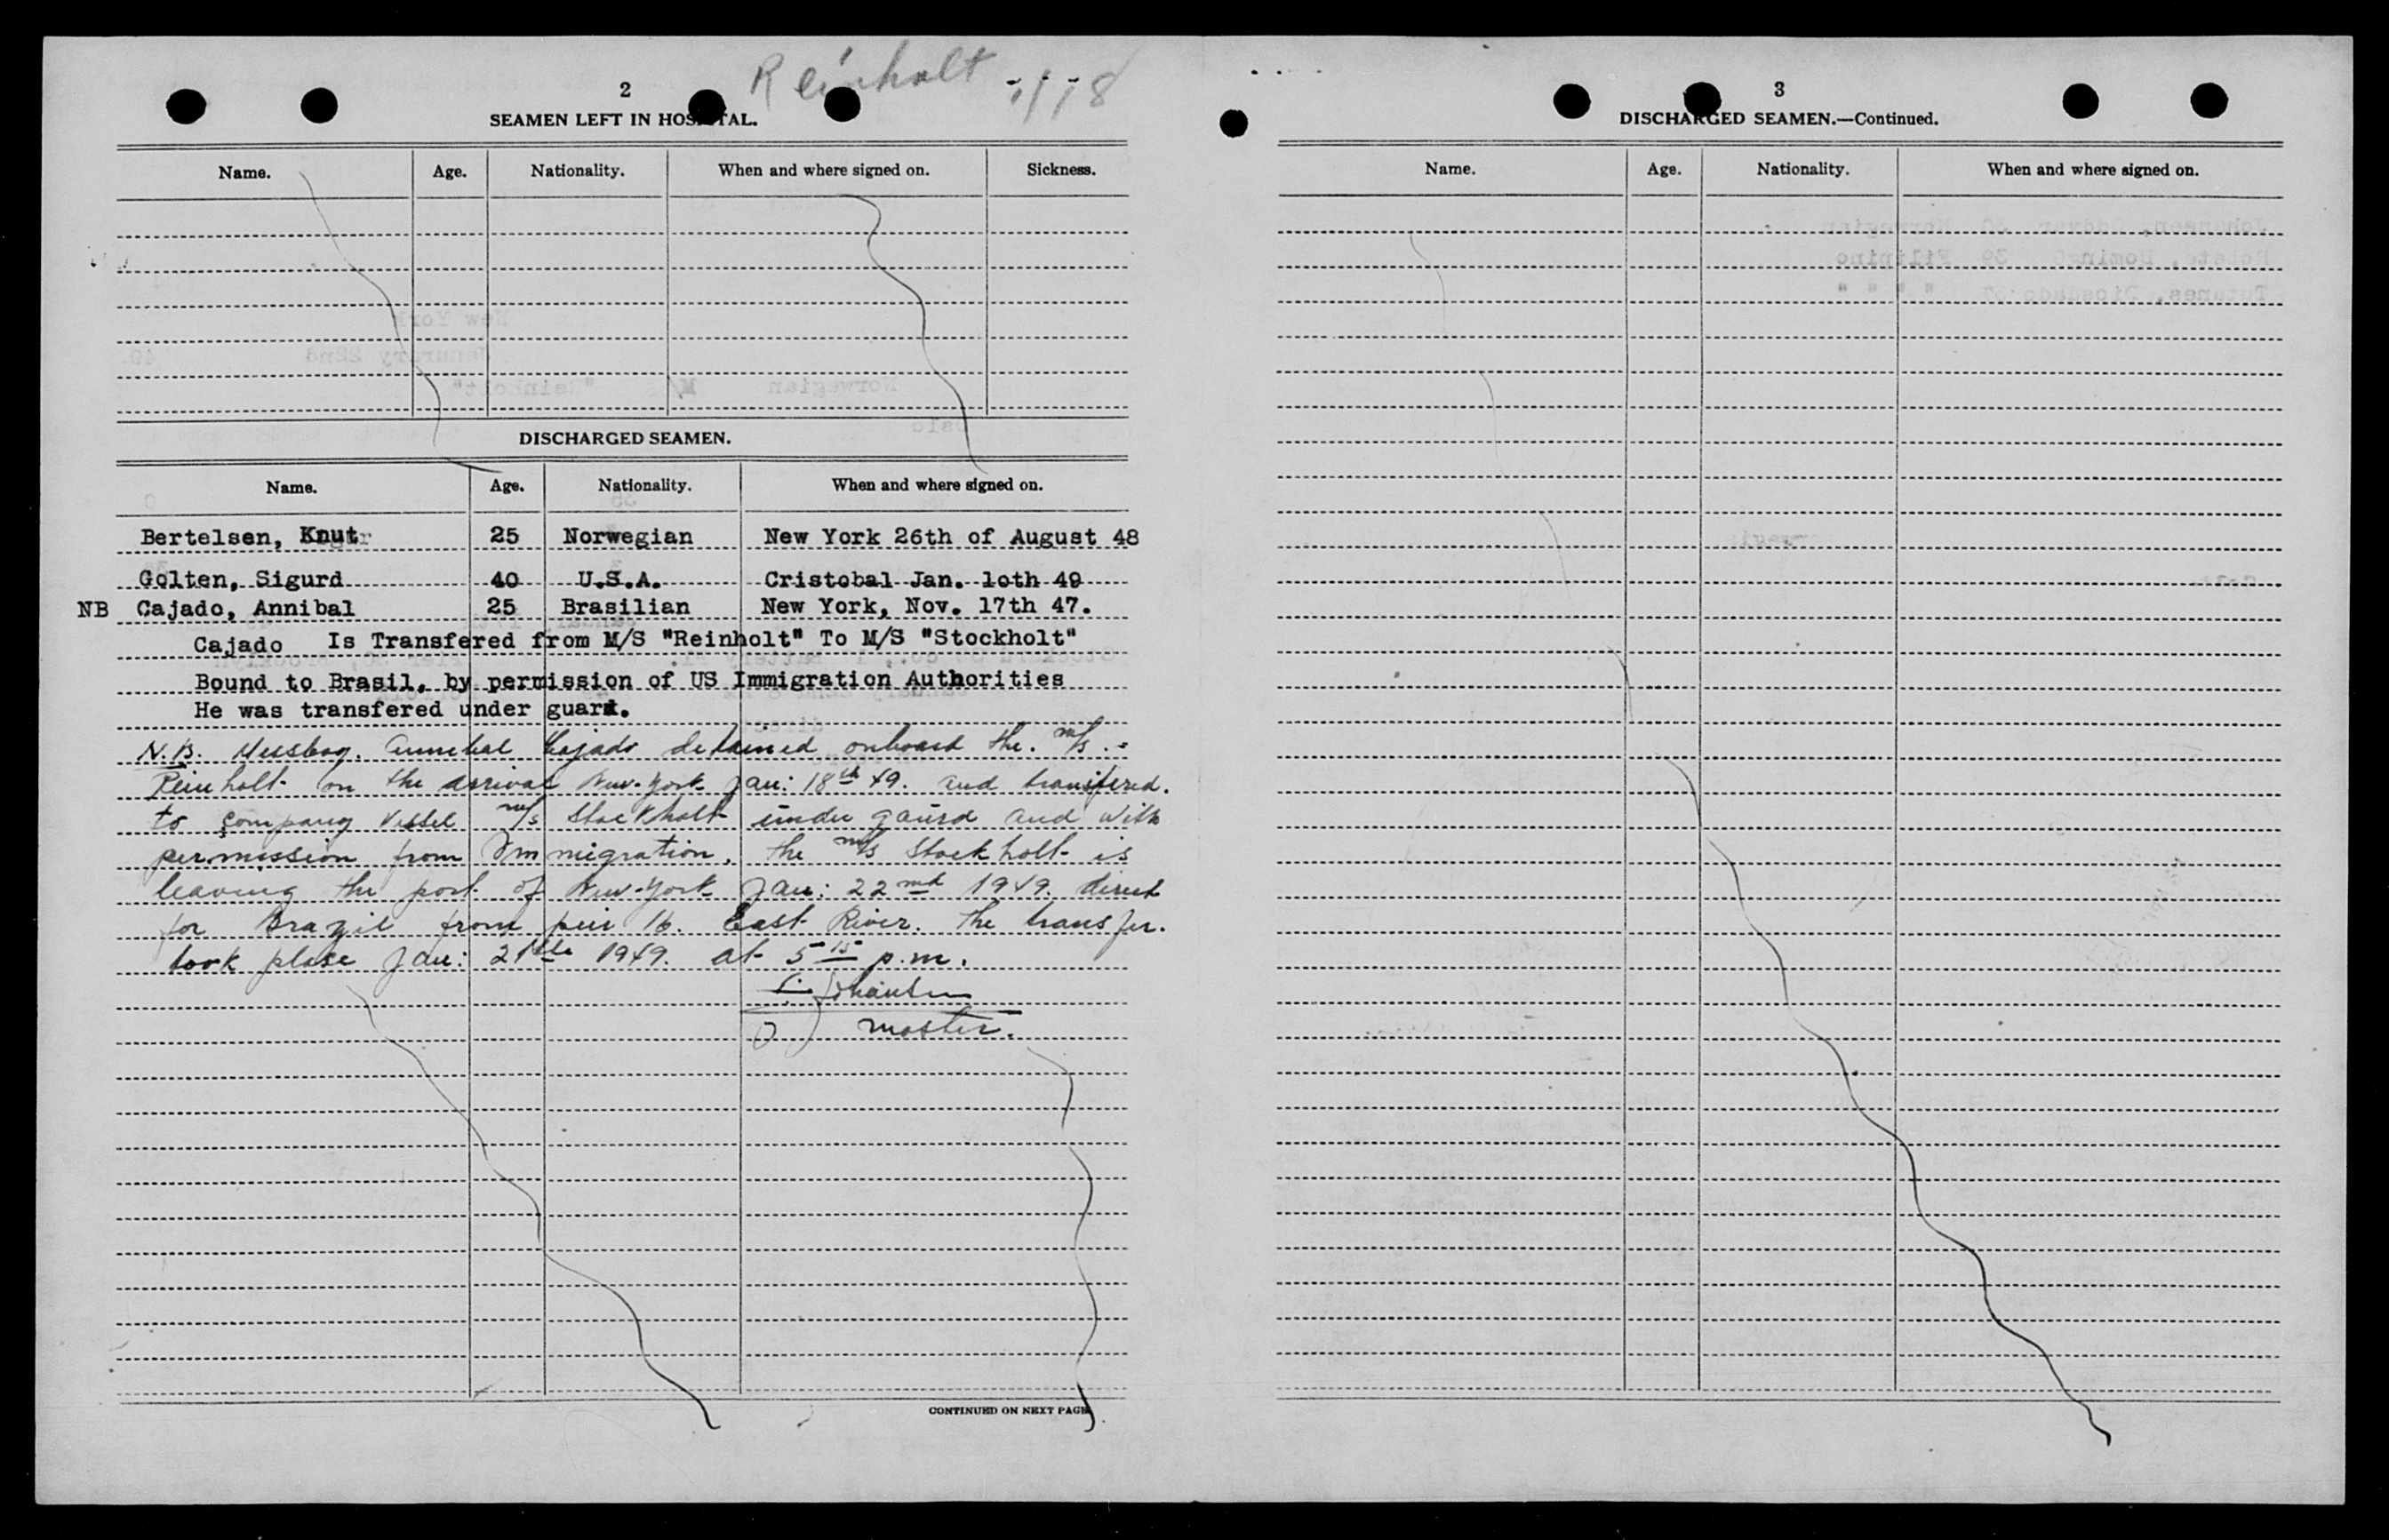 Reinholt 1/18
2
SEAMEN LEFT IN HOSPITAL.
Name. Age. Nationality. When and where signed on. Sickness.
DISCHARGED SEAMEN.
Name. Age. Nationality. When and where signed on.
Bertelsen, Knut 25 Norwegian New York 26th of August 48
Golten, Sigurd 40 U.S.A. Cristobal Jan. 10th 49
NB Cajado, Annibal 25 Brasilian New York, Nov. 17th 47.
Cajado Is Transfered from M/S "Reinholt" To M/S "Stockholt"
Bound to Brasil, by permission of US Immigration Authorities
He was transfered under guard.
N.B. Messboy. Annibal Cajado detained onboard the. m/s.
Reinholt on the arrival New-York Jan: 18th 49. and transfered.
to company vessel m/s Stockholt under gaurd and with
permission from Immigration. the m/s Stockholt is
leaving the port of New-York Jan: 22nd 1949. direct
for Brazil from peir 16. East River. The transfer.
took plase Jan: 21the 1949. at 5 15 p.m.
Johansen
master.
CONTINUED ON NEXT PAGE.
3
DISCHARGED SEAMEN.—Continued.
Name. Age. Nationality. When and where signed on.